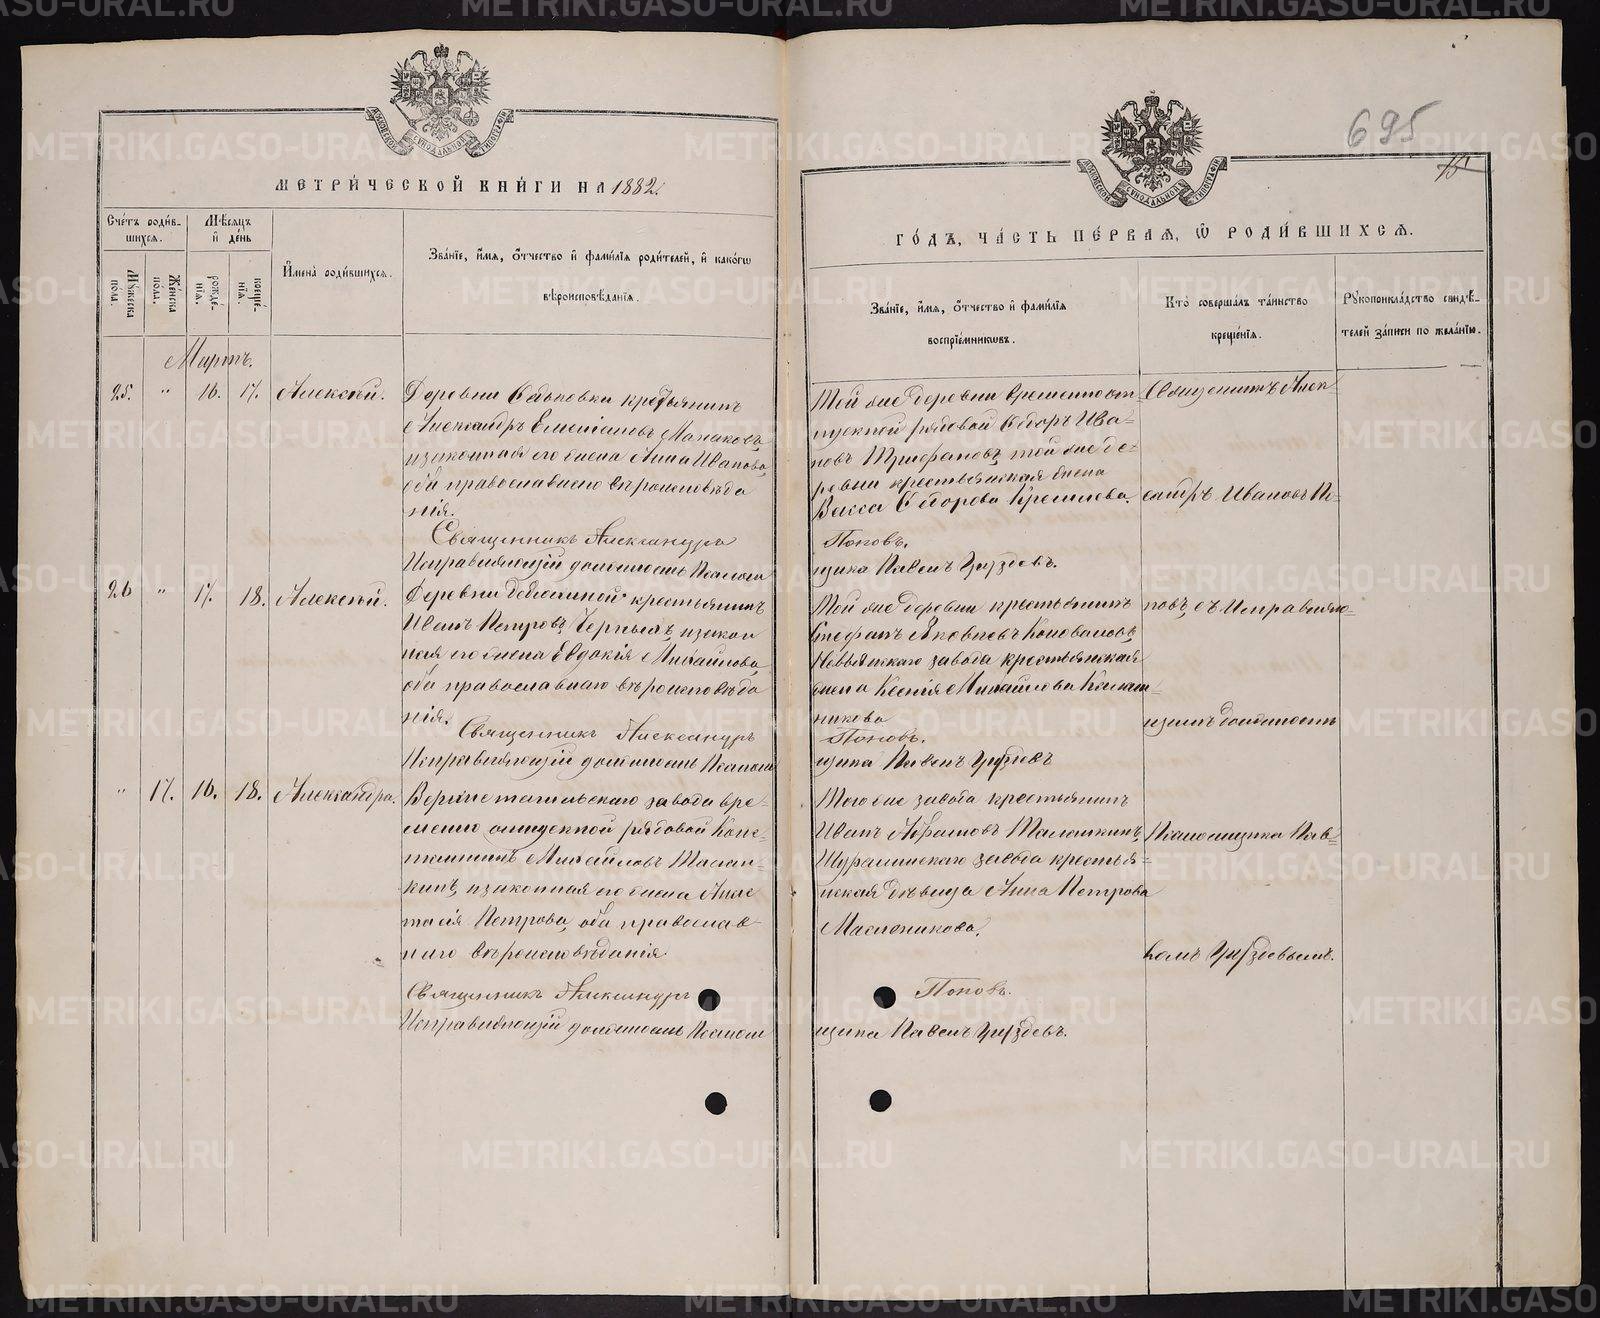 МЕТРИЧЕСКОЙ КНИГИ НА 1882.
Счетъ родив-
шихся.
Мужеска пола.
Женска пола.
Мѣсяцъ
и день
рожде-
нія.
креще-
нія.
Имена родившихся.
Званіе, имя, отчество и фамилія родителей, и какогω
вѣроисповѣданія.
Мартъ.
25. " 16. 17. Алексѣй.
Деревни крестьянинъ
Александръ
изаконная его жена Анна Иванова,
оба православнаго вѣроисповѣда
нія.
Священникъ Александръ
Исправляющій должность Псалом
26 " 17. 18. Алексѣй.
Деревни крестьянинъ
Иванъ Петровъ Черныхъ, изакон
ная его жена Евдокія Михайлова,
оба православнаго вѣроисповѣда
нія.
Священникъ Александръ
Исправляющій должность Псалом
" 17. 16. 18. Александра.
Верхнетагильскаго завода вре-
менно отпускной рядовой Конс-
тантинъ Михайловъ
изаконная его жена Анас
тасія Петрова, оба православ
наго вѣроисповѣданія.
Священникъ Александръ
Исправляющій должность Псалом
695
ГОДЪ, ЧАСТЬ ПЕРВАЯ, Ѡ РОДИВШИХСЯ.
Званіе, имя, отчество и фамилія
воспріемниковъ.
Кто совершалъ таинство
крещенія.
Рукоприкладство свидѣ-
телей записи по желанію.
Той же деревни временноотп-
ускной рядовой Ѳедоръ Ива-
новъ Трифановъ, той же де-
ревни крестьянская жена
Васса Ѳедорова
Поповъ.
щика Павелъ Груздевъ.
Той же деревни крестьянинъ
Стефанъ Яковлевъ Коноваловъ,
Невьянскаго завода крестьянская
жена Ксенія Михайлова
никова
Поповъ.
щика Павелъ Груздевъ
Того же завода крестьянинъ
Иванъ Абрамовъ
Шуралинскаго завода крестья-
нская дѣвица Анна Петрова
Масленикова.
Поповъ.
щика Павелъ Груздевъ.
Священникъ Алек-
сандръ Ивановъ По-
повъ, съ Исправляю-
щимъ должность
Псаломщика Пав-
ломъ Груздевымъ.
METRIKI.GASO-URAL.RU